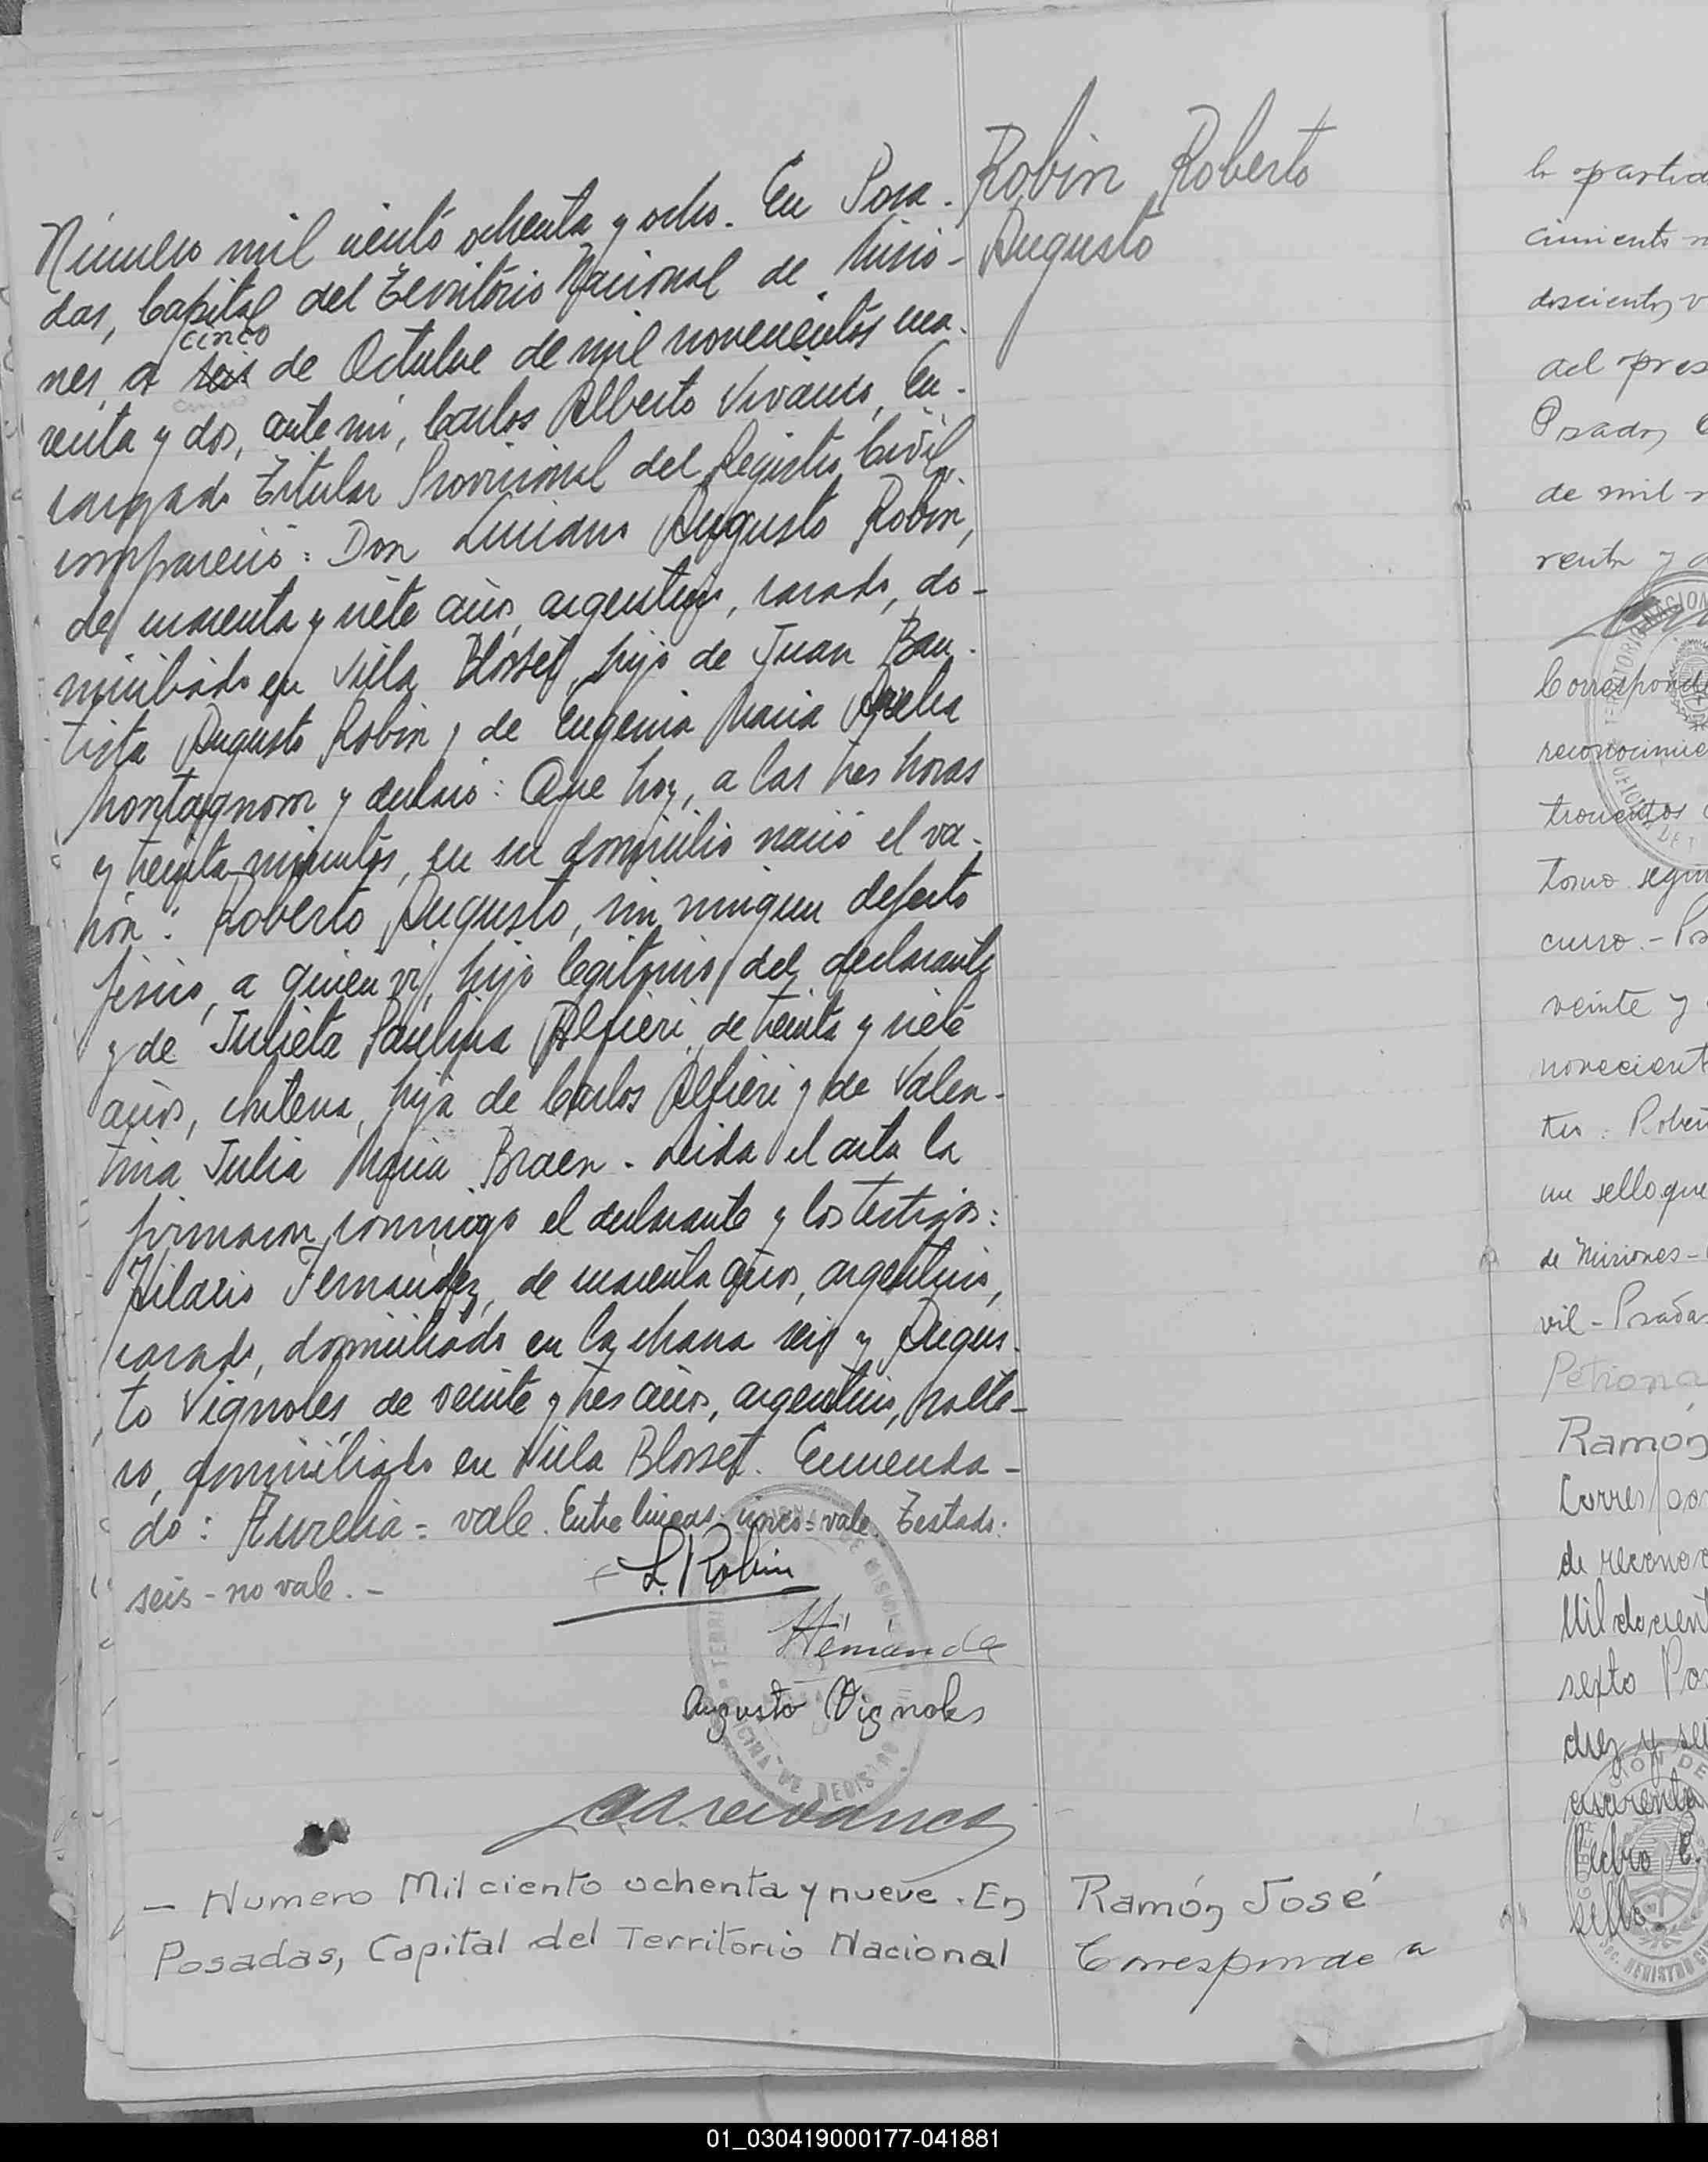 Robin Roberto
Augusto
Número mil ciento ochenta y ocho. En Posa-
das, Capital del Territorio Nacional de Misio-
nes, a seis cinco de Octubre de mil novecientos cua-
renta y dos, ante mi, Carlos Alberto Vivanco, En-
cargado Titular Provisional del Registro Civil,
compareció: Don Luciano Augusto Robin,
de cuarenta y siete años, argentino, casado, do-
miciliado en Villa Blosset, hijo de Juan Bau-
tista Augusto Robin y de Eugenia Maria Aurelia
Montagnon y declaró: Que hoy, a las tres horas
y treinta minutos, en su domicilio nació el va-
rón: Roberto Augusto, sin ningun defecto
fisico, a quien vi, hijo legitimo del declarante
y de Julieta Paulina Alfieri, de treinta y siete
años, chilena, hija de Carlos Alfieri y de Valen-
tina Julia Maria Braen. Leida el acta la
firmaron conmigo el declarante y los testigos:
Hilario Fernandez, de cuarenta años, argentino,
casado, domiciliado en la chacra seis y Augus-
to Vignoles, de veinte y tres años, argentino, solte-
ro, domiciliado en Villa Blosset. Enmenda-
do: Aurelia = vale. Entre lineas: cinco = vale. Testado:
seis - no vale. -
L. Robin
Augusto Vignoles
- Numero Mil ciento ochenta y nueve. En
Posadas, Capital del Territorio Nacional
Ramón José
Corresponde a
la partida
cimiento
doscientos
del pres
Posadas
de mil
renta y
Corresponde
reconocimie
trocientos
tomo segun
curso. -
veinte y
novecient
tes: Rober
un sello que
de Misiones -
vil - Posadas
Petrona
Ramón
Corres
de reconoc
Mil doscient
sexto Pos
diez y sei
cuarenta
Pedro C.
sello.
REGISTRO
01_030419000177-041881